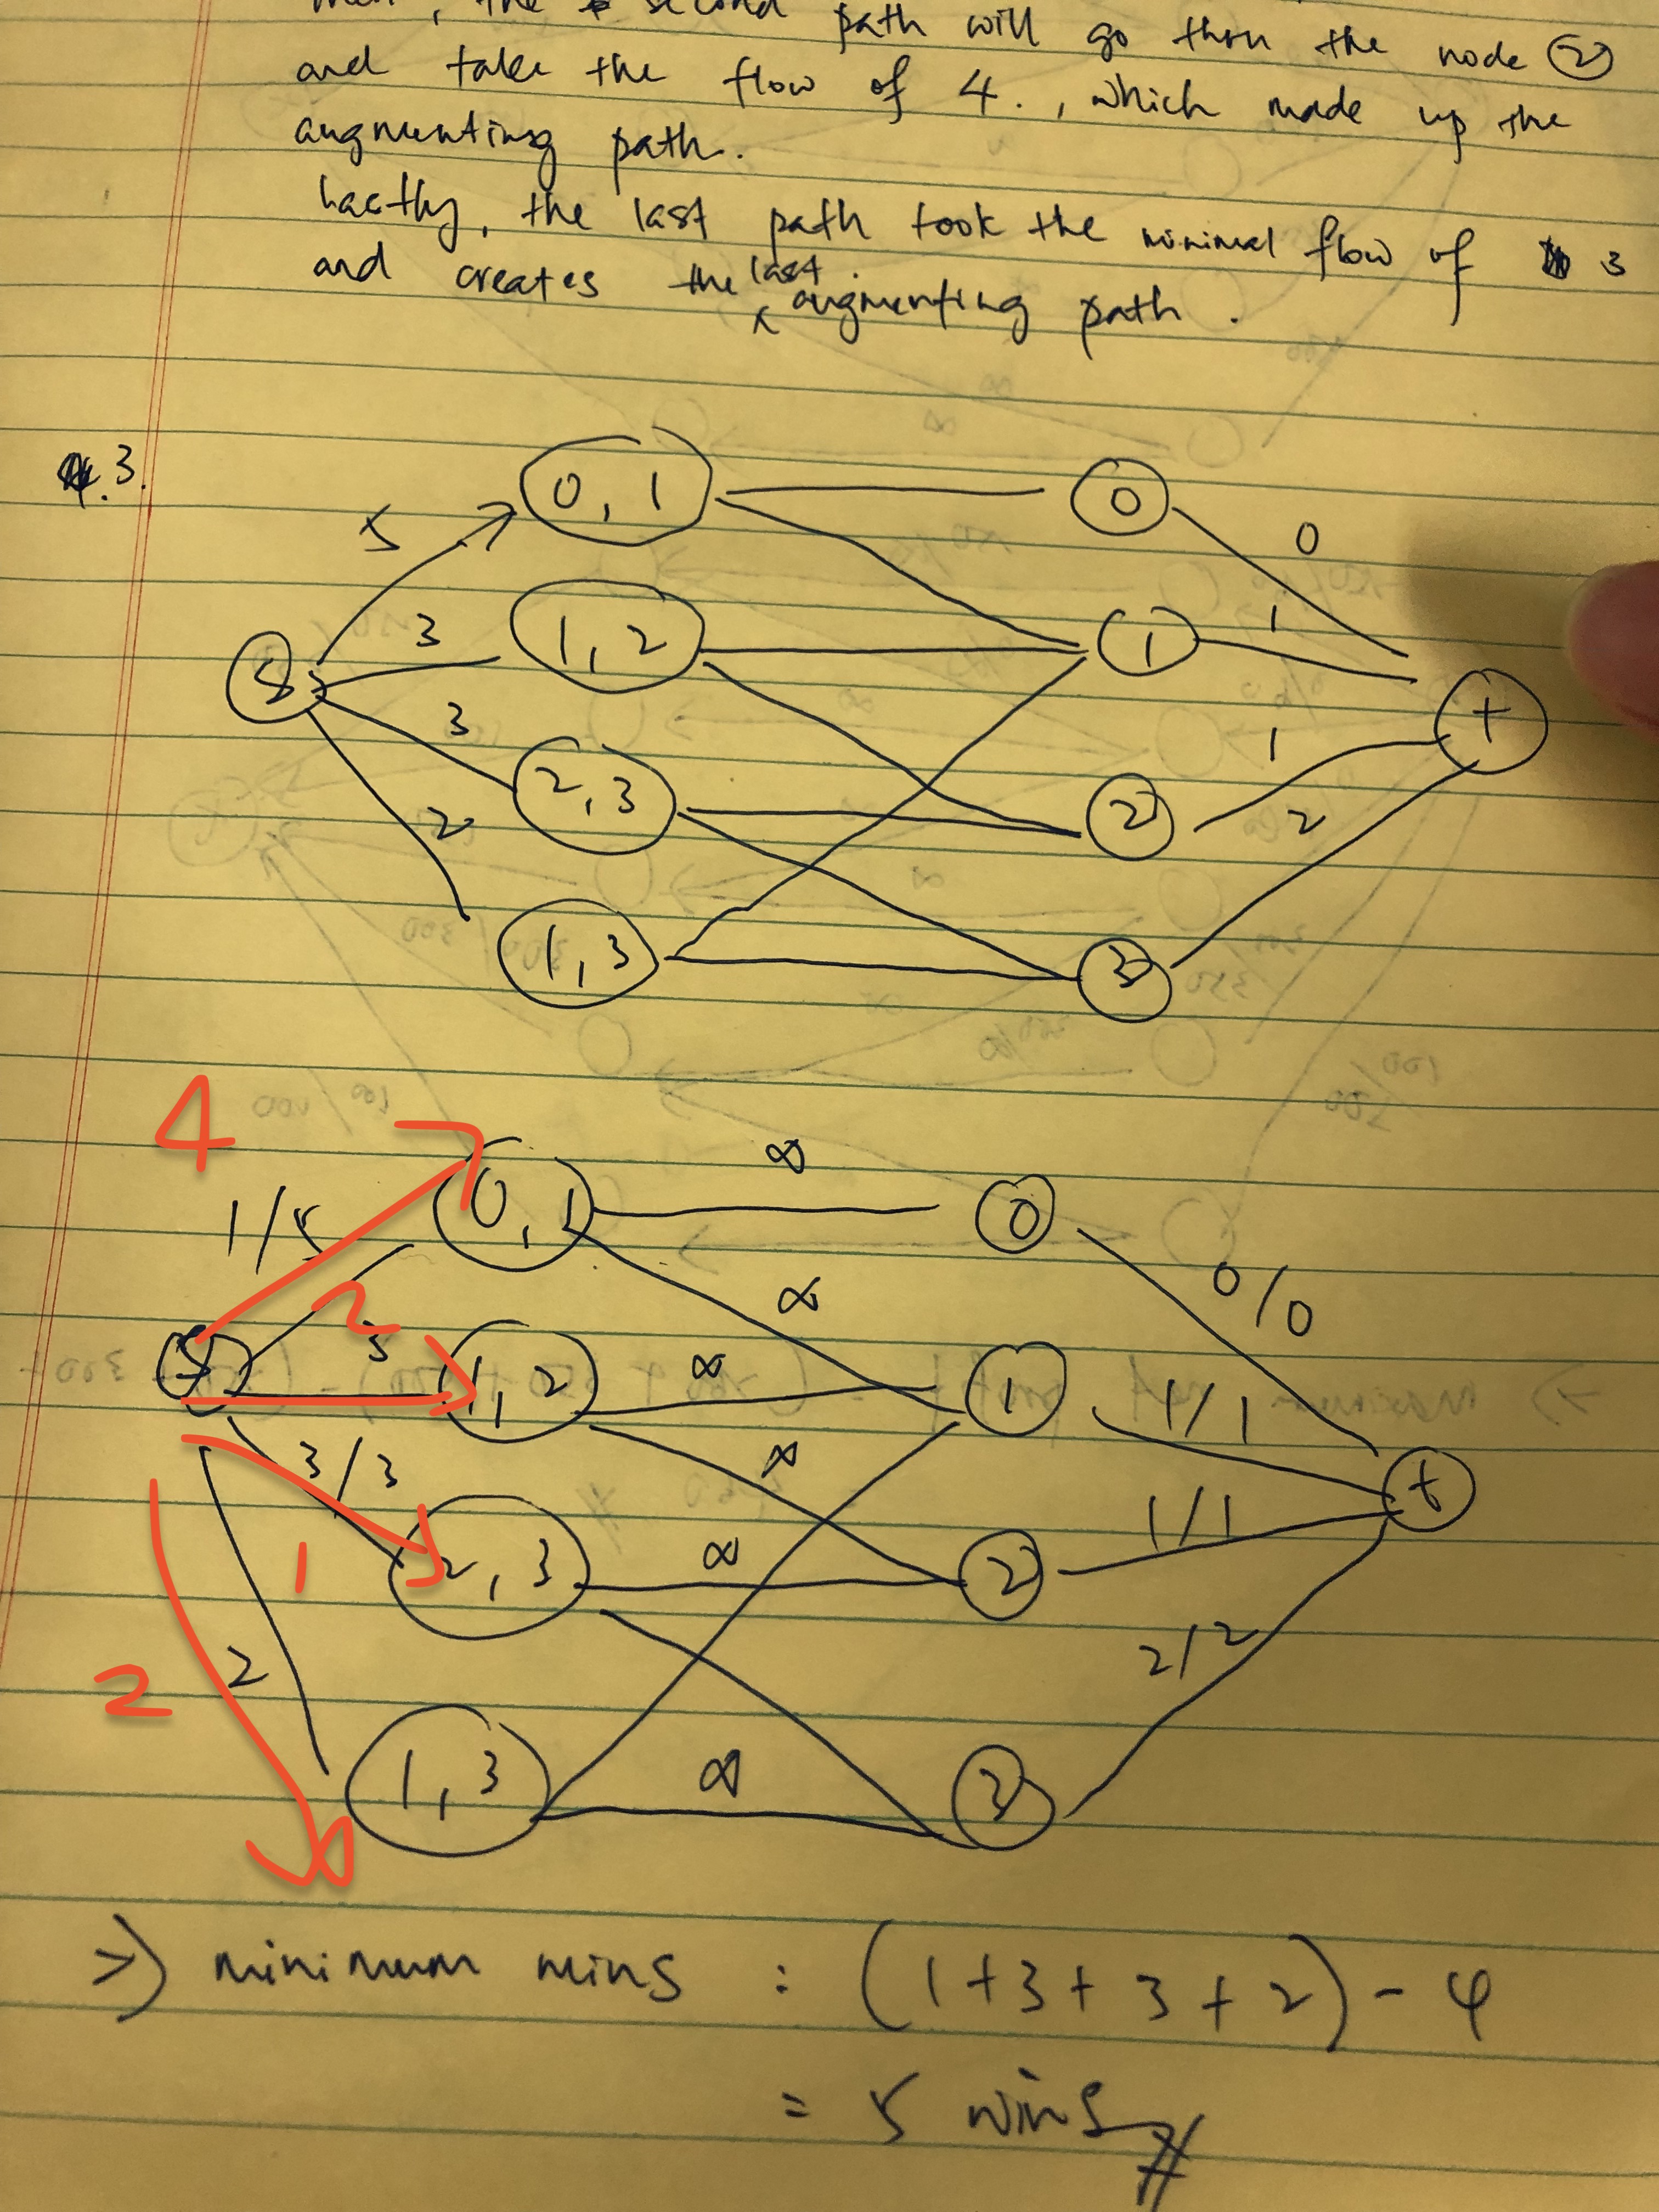 the second path will go thru the node 2
and take the flow of 4. , which made up the
augmenting path.
Lastly, the last path took the minimal flow of 3
and creates the last augmenting path.
3.
0, 1
0
5
0
3
1, 2
1
1
S
3
t
2, 3
2
1
2
2
1, 3
3
4
∞
1/5
0, 1
0
∞
0/0
3
3
S
1, 2
∞
1
1/1
∞
t
3/3
1/1
1
2, 3
∞
2
2/2
2
2
1, 3
∞
3
=> minimum wins : (1+3+3+2) - 4
= 5 wins